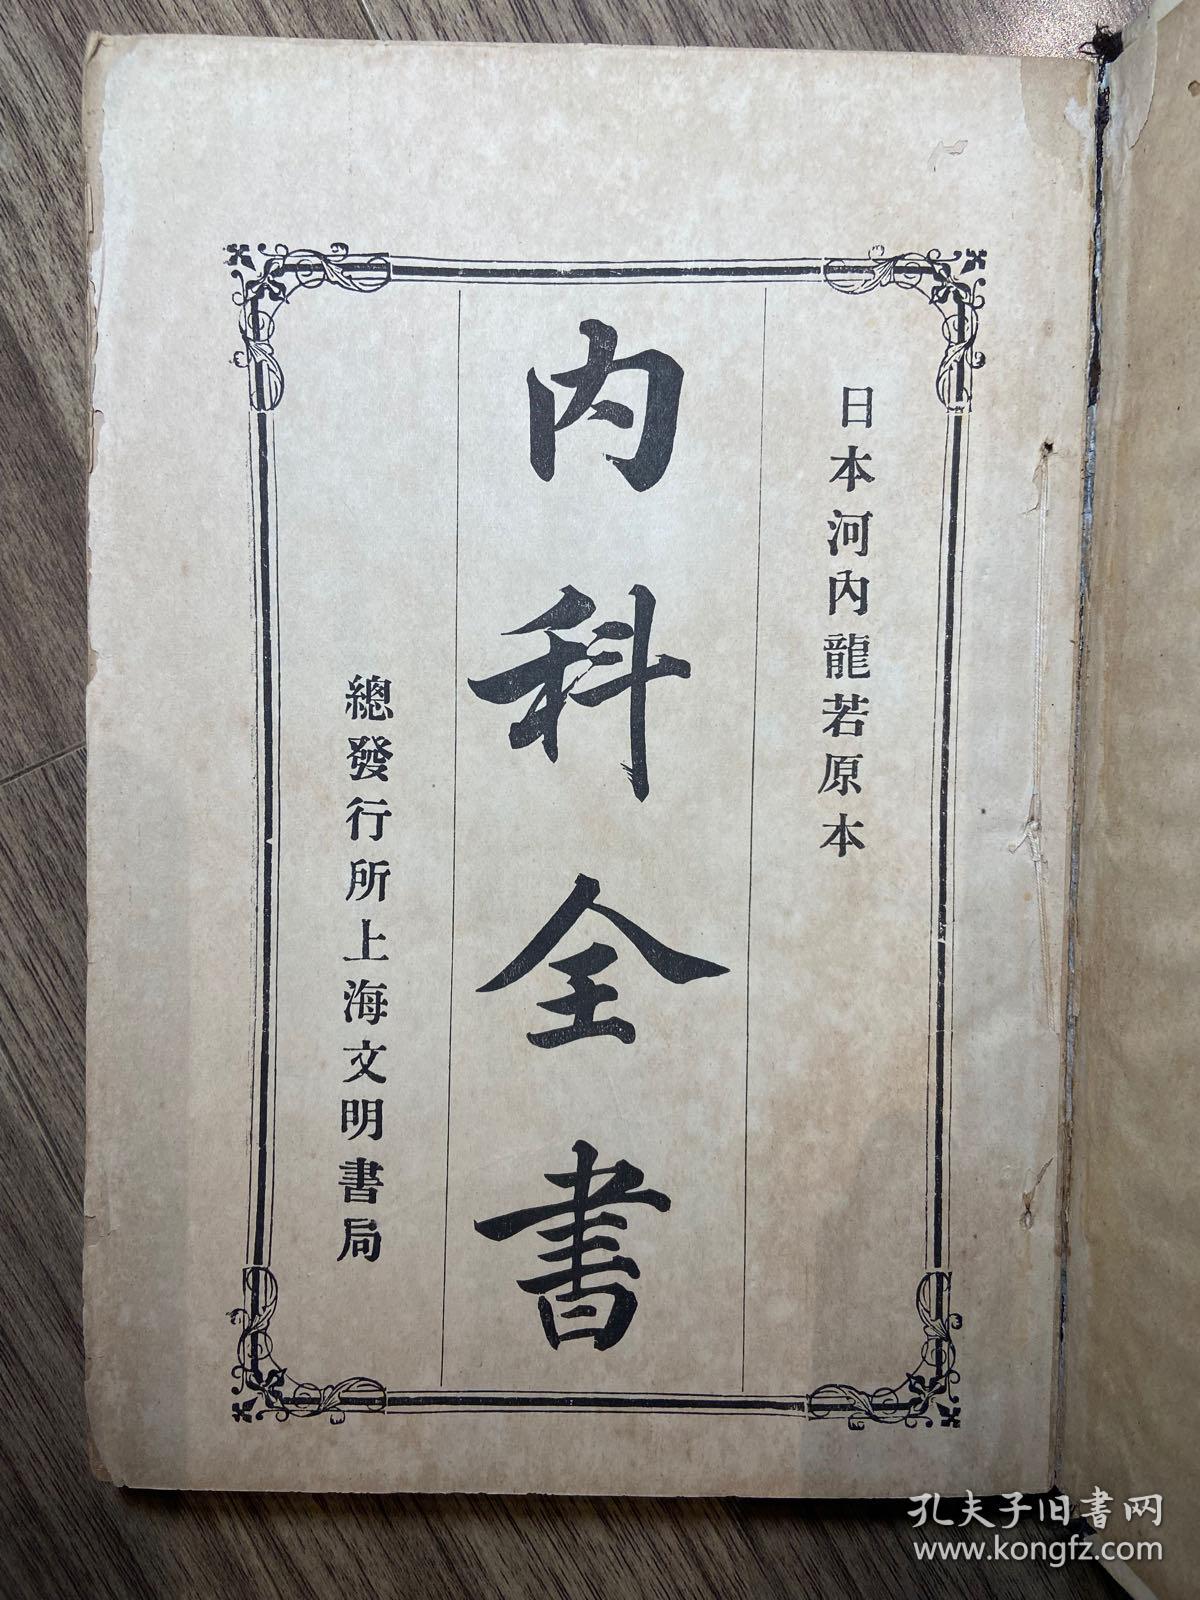 日本河內龍若原本
內科全書
總發行所上海文明書局
孔夫子旧書网
www.kongfz.com